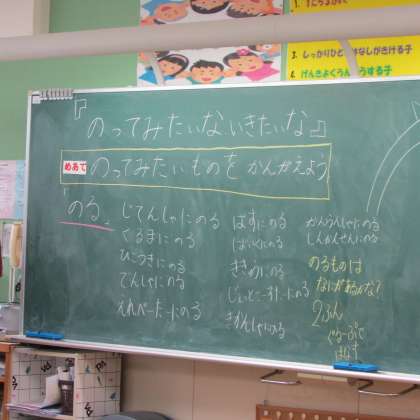 1. すたちあがる
2. しっかりひとのはなしがきける子
3. げんきよくうんどうする子
『のってみたいな いきたいな』
めあて のってみたいものを かんがえよう
「のる」
じてんしゃにのる
くるまにのる
ひこうきにのる
でんしゃにのる
えれべーたーにのる
ばすにのる
ばいくにのる
きかんしゃにのる
しんかんせんにのる
のるものは
なにがあるかな?
2ふん
ぐるーぷで
はなす